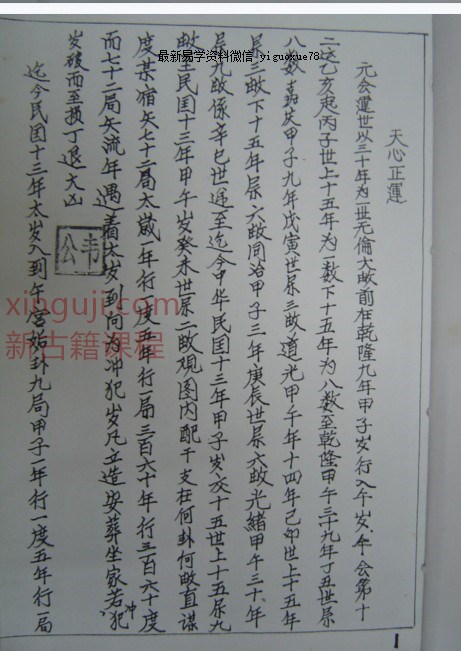 最新易学资料微信：yiguoxue78
天心正運
元会運世以三十年为一世无倫大畝前在乾隆九年甲子岁行入午岁午会第十
二运乙亥起丙子世上十五年为一数下十五年为八数至乾隆甲午三十九年丁丑世屬
八数嘉慶甲子九年戊寅世屬三畝道光甲午年十四年己卯世上十五年
屬三畝下十五年屬六畝同治甲子三年庚辰世屬六畝光緒甲午三十年
屬九畝係辛巳世運至迄今中华民国十三年甲子岁交十五世上十五屬九
畝至民国十三年甲午岁癸未世屬二畝观图内配干支在何卦何畝直謀
度某宿矢七十二局太歲一年行一度五年行一局三百六十年行三百六十度
而七十二局矢流年遇着太岁到向为冲犯岁凡立造安葬坐家若犯冲
岁破而至损丁退大凶
韦公
迄今民国十三年太岁入到午宫姤卦九局甲子一年行一度五年行一局
xinguji.com
新古籍课程
1